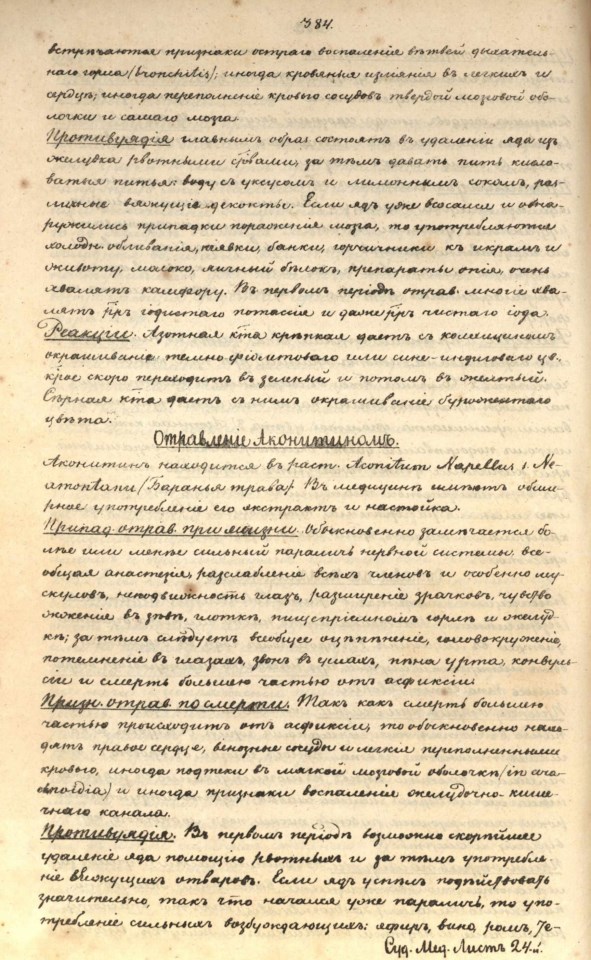 384.
встрѣчаются признаки остраго воспаленіе вѣтвей дыхатель-
наго горла (bronchitis); иногда кровяныя изліянія въ легкихъ и
сердцѣ; иногда переполненіе кровью сосудовъ твердой мозговой обо-
лочки и самаго мозга.
Противуядія главнымъ образ. состоятъ въ удаленіи яда изъ
желудка рвотными срвами, за тѣмъ давать пить кисло-
ватыя питья: воду съ уксусомъ и лимоннымъ сокомъ, раз-
личные вяжущіе декокты. Если ядъ уже всосался и обна-
ружились припадки пораженія мозга, то употребляются
холодн. обливанія, піявки, банки, горчичники къ икрамъ и
животу, молоко, яичный бѣлокъ, препараты опія, очень
хвалятъ камфору. Въ первомъ періодѣ отрав. многіе хва-
лятъ рръ іодистаго потассія и даже рръ чистаго іода.
Реакціи. Азотная кта крѣпкая даетъ съ колхициномъ
окрашиваніе темно-фіолетоваго или сине-индиговаго цв.
крое скоро переходитъ въ зеленый и потомъ въ желтый.
Сѣрная кта даетъ съ нимъ окрашиваніе буро-желтаго
цвѣта.
Отравленіе Аконитиномъ.
Аконитинъ находится въ раст. Aconitum Napellus s. Ne-
omontanu (Баранья трава). Въ медицинѣ имѣетъ обшир-
ное употребленіе его экстрактъ и настойка.
Припад. отрав. при жизни. Обыкновенно замѣчается бо-
лѣе или менѣе сильный параличъ нервной системы. все-
общая анастезія, разслабленіе всѣхъ членовъ и особенно му-
скуловъ, неподвижность глазъ, разширеніе зрачковъ, чувство
жженія въ зѣвѣ, глоткѣ, пищепріемномъ горлѣ и желуд-
кѣ; за тѣмъ слѣдуетъ всеобщее оцѣпѣненіе, головокруженіе,
потемненіе въ глазахъ, звонъ въ ушахъ, пѣна у рта, конвуль-
сіи и смерть большею частью отъ асфиксіи.
Призн. отрав. по смерти. Такъ какъ смерть большею
частью происходитъ отъ асфиксіи, то обыкновенно нахо-
дятъ правое сердце, венозные сосуды и легкія переполненными
кровью, иногда подтеки въ мягкой мозговой оболочкѣ (in ara-
chnoidia) и иногда признаки воспаленіе желудочно-кише-
чнаго канала.
Противуядія. Въ первомъ періодѣ возможно скорѣйшее
удаленіе яда помощію рвотныхъ и за тѣмъ употребле-
ніе вяжущихъ отваровъ. Если ядъ успѣлъ подѣйствовать
значительно, такъ что начался уже параличъ, то упо-
требленіе сильныхъ возбуждающихъ: эфиръ, вино, ромъ,
Суд. Мед. Листъ 24.й.